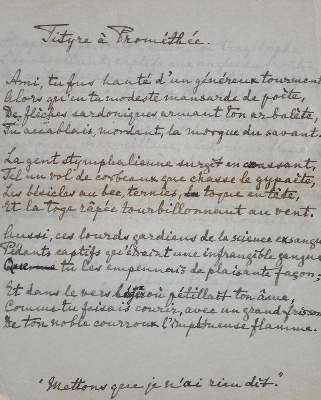 Tityre à Prométhée.
Ami, tu fus hanté d'un généreux tourment
Alors qu'en ta modeste mansarde de poète,
De flèches sardoniques armant ton arbalète,
Tu accablais, mordant, la morgue du savant.
La gent stymphalienne surgit en coassant,
Tel un vol de corbeaux que chasse le gypaète,
Les bésicles au bec, ternies, la toque en tête,
Et la toge râpée tourbillonnant au vent.
Aussi, ces lourds gardiens de la science exsangue
Pédants captifs qu'étreint une infrangible gangue
Que tu les empennais de plaisante façon;
Et dans le vers où pétillait ton âme,
Comme tu faisais courir, avec un grand frisson
De ton noble courroux l'impétueuse flamme.
"Mettons que je n'ai rien dit."